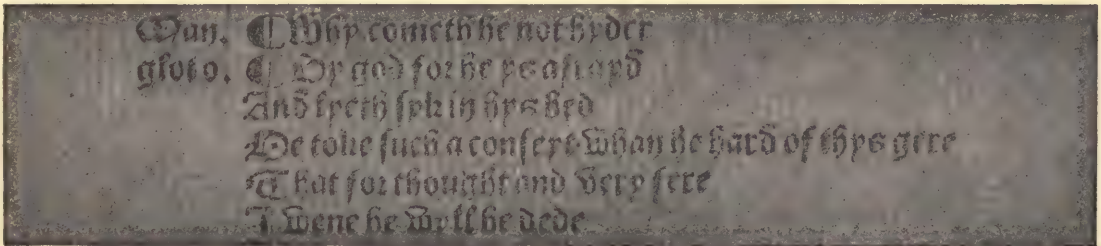 Man. ¶ Why cometh he not hyder
gloto. ¶ By god for he ys afrayd
And lyeth syk in hys bed
He toke such a conseyt whan he hard of thys gere
That for thought and very fere
I wene he wyll be dede